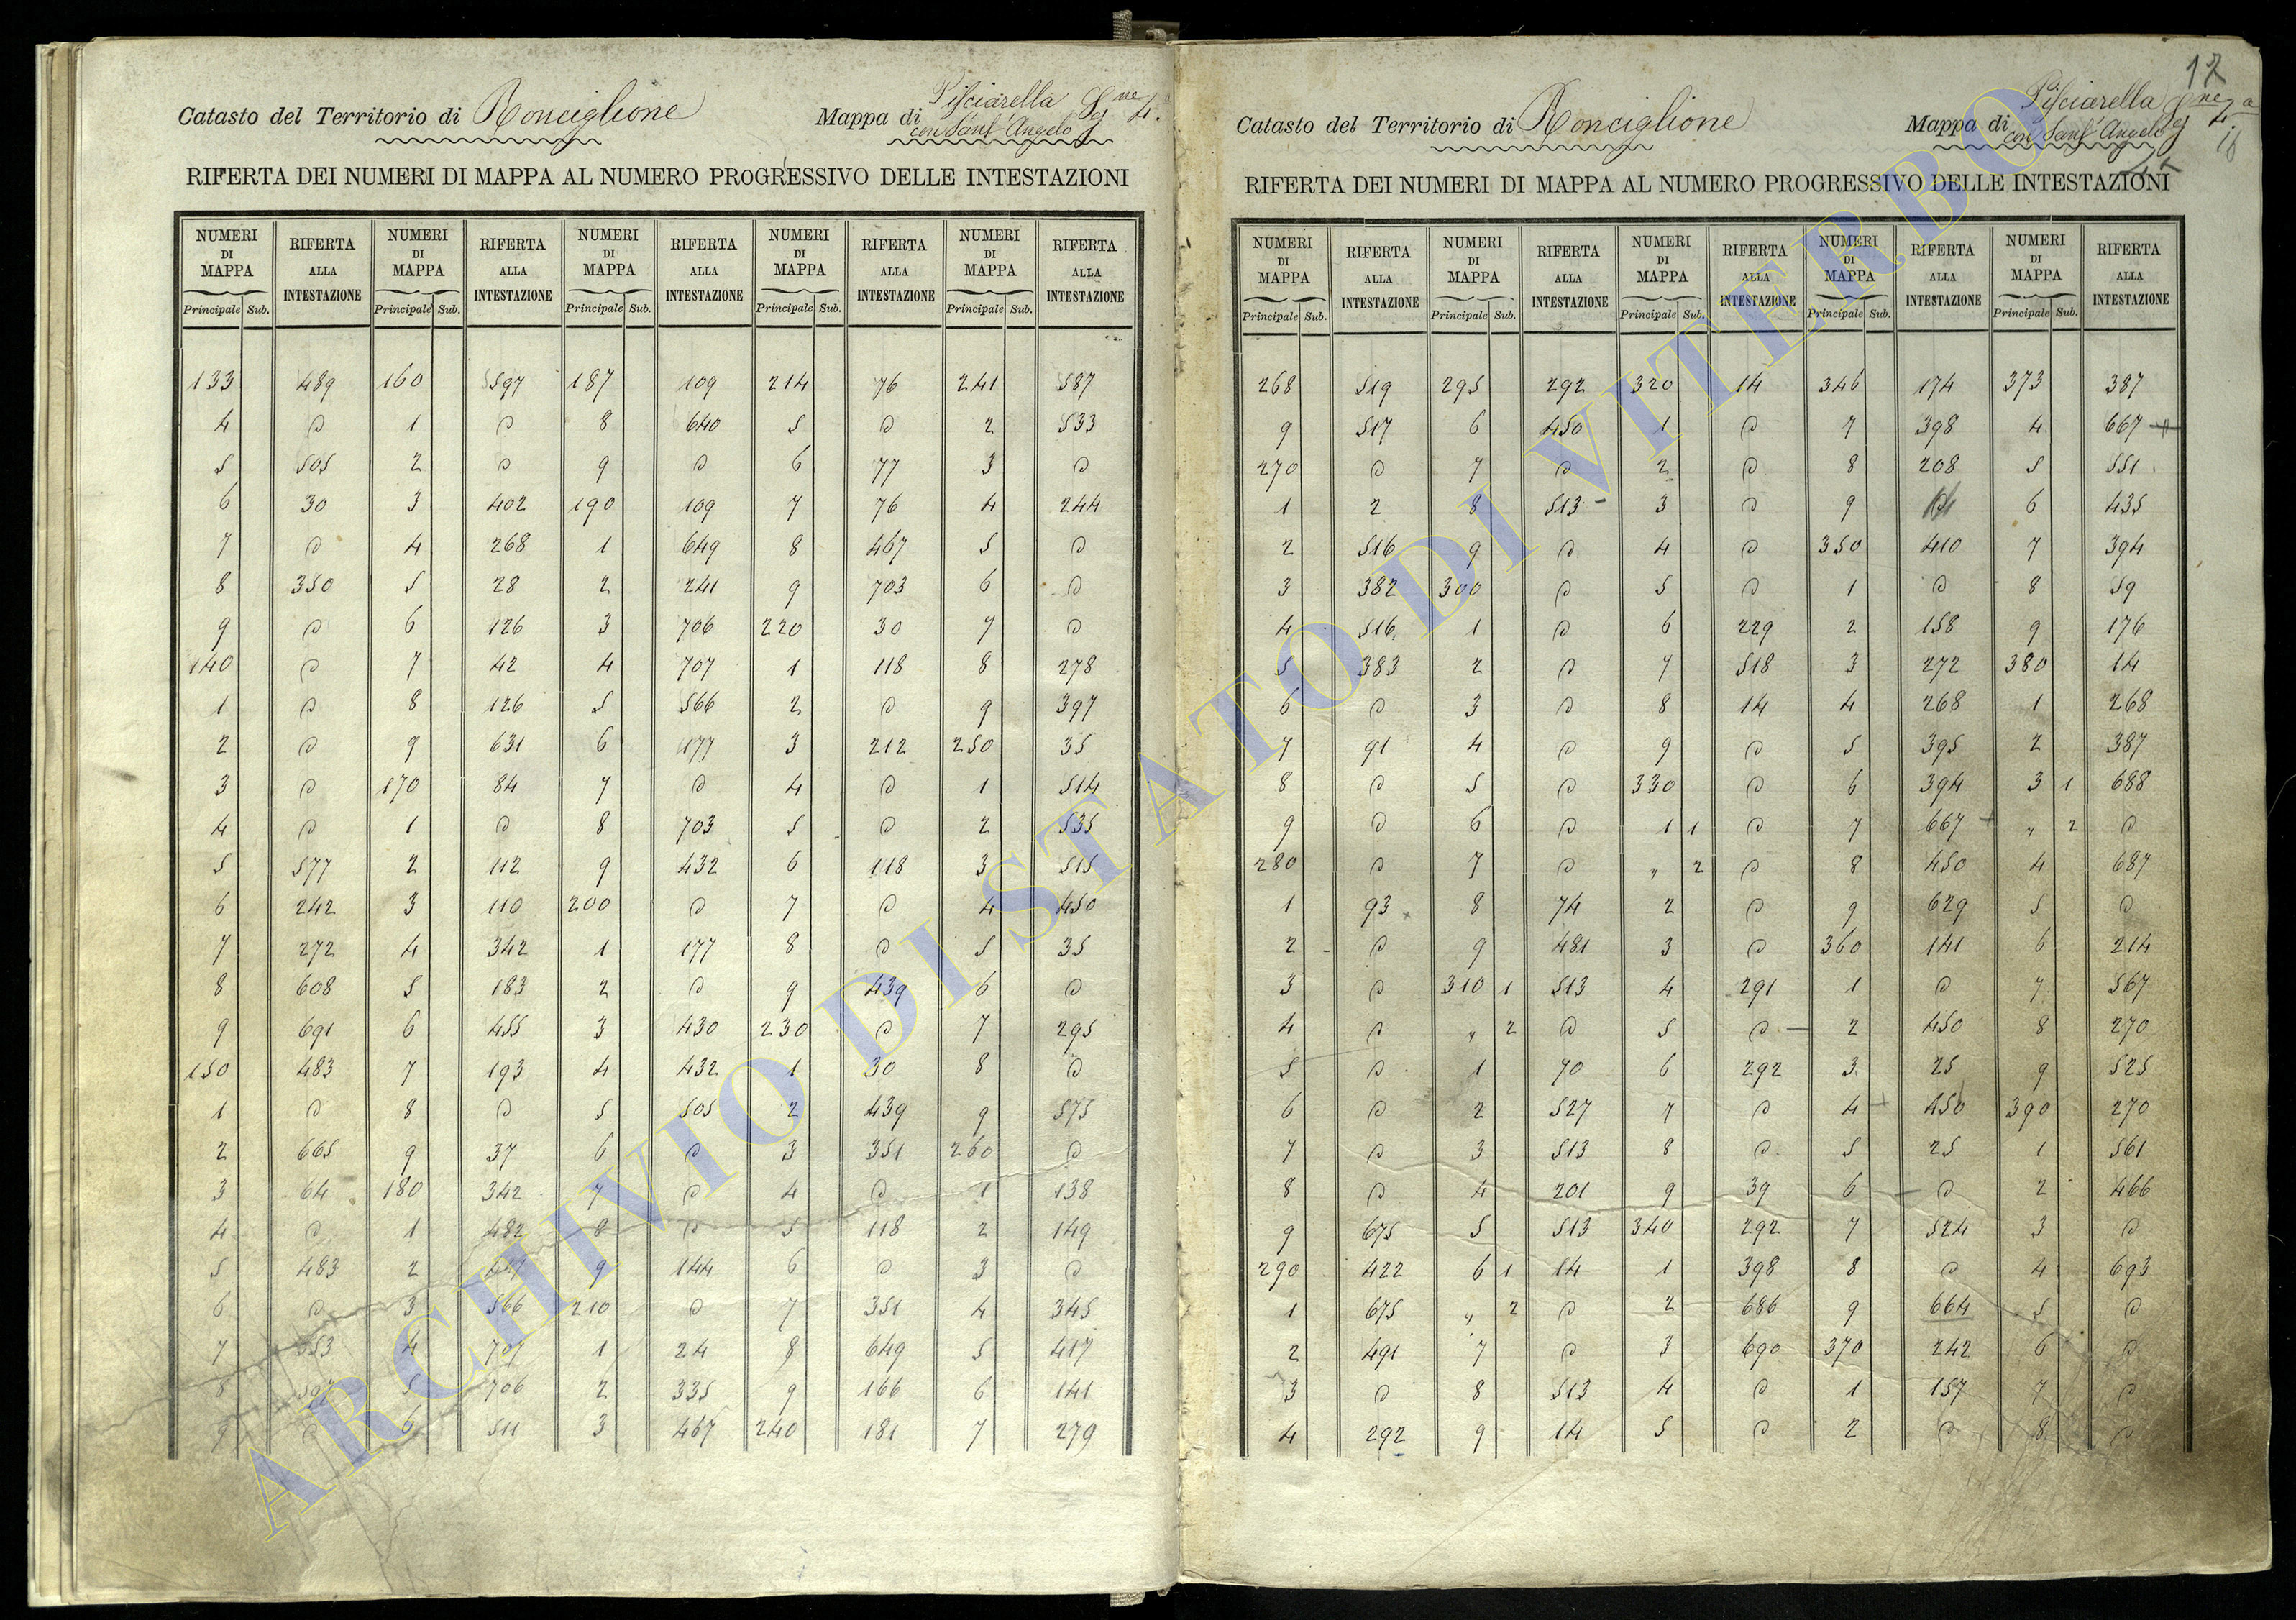 12
Catasto del Territorio di Ronciglione Mappa di Pisciarella con Sant' Angelo Sez.ne 4.
RIFERTA DEI NUMERI DI MAPPA AL NUMERO PROGRESSIVO DELLE INTESTAZIONI
NUMERI DI MAPPA RIFERTA ALLA INTESTAZIONE NUMERI DI MAPPA RIFERTA ALLA INTESTAZIONE NUMERI DI MAPPA RIFERTA ALLA INTESTAZIONE NUMERI DI MAPPA RIFERTA ALLA INTESTAZIONE NUMERI DI MAPPA RIFERTA ALLA INTESTAZIONE
Principale Sub. Principale Sub. Principale Sub. Principale Sub. Principale Sub.
133 489 160 597 187 109 214 76 241 587
4 D 1 D 8 640 5 D 2 533
5 505 2 D 9 D 6 77 3 D
6 30 3 402 190 109 7 76 4 244
7 D 4 268 1 649 8 467 5 D
8 350 5 28 2 241 9 703 6 D
9 D 6 126 3 706 220 30 7 D
140 D 7 42 4 707 1 118 8 278
1 D 8 126 5 566 2 D 9 397
2 D 9 631 6 177 3 212 250 35
3 D 170 84 7 D 4 D 1 514
4 D 1 D 8 703 5 D 2 535
5 577 2 112 9 432 6 118 3 515
6 242 3 110 200 D 7 D 4 450
7 272 4 342 1 177 8 D 5 35
8 608 5 183 2 D 9 439 6 D
9 691 6 455 3 430 230 D 7 295
150 483 7 193 4 432 1 30 8 D
1 D 8 D 5 505 2 439 9 575
2 665 9 37 6 D 3 351 260 D
3 64 180 342 7 D 4 D 1 138
4 D 1 482 8 D 5 118 2 149
5 483 2 9 144 6 D 3 D
6 D 3 566 210 D 7 351 4 345
7 353 4 707 1 24 8 649 5 417
8 5 706 2 335 9 166 6 141
9 D 6 511 3 467 240 181 7 279
Catasto del Territorio di Ronciglione Mappa di Pisciarella con Sant' Angelo Sez.ne 4a
RIFERTA DEI NUMERI DI MAPPA AL NUMERO PROGRESSIVO DELLE INTESTAZIONI
NUMERI DI MAPPA RIFERTA ALLA INTESTAZIONE NUMERI DI MAPPA RIFERTA ALLA INTESTAZIONE NUMERI DI MAPPA RIFERTA ALLA INTESTAZIONE NUMERI DI MAPPA RIFERTA ALLA INTESTAZIONE NUMERI DI MAPPA RIFERTA ALLA INTESTAZIONE
Principale Sub. Principale Sub. Principale Sub. Principale Sub. Principale Sub.
268 519 295 292 320 14 346 174 373 387
9 517 6 450 1 D 7 398 4 667
270 D 7 D 2 D 8 208 5 551
1 2 8 513 3 D 9 6 435
2 516 9 D 4 D 350 410 7 394
3 382 300 D 5 D 1 D 8 59
4 516 1 D 6 229 2 158 9 176
5 383 2 D 7 518 3 272 380 14
6 D 3 D 8 14 4 268 1 268
7 91 4 D 9 D 5 395 2 387
8 D 5 D 330 D 6 394 3 1 688
9 D 6 D 1 1 D 7 667 " 2 D
280 D 7 D " 2 D 8 450 4 687
1 93 8 74 2 D 9 629 5 D
2 D 9 481 3 D 360 141 6 214
3 D 310 1 513 4 291 1 D 7 567
4 D " 2 D 5 D 2 450 8 270
5 D 1 70 6 292 3 25 9 525
6 D 2 527 7 D 4 450 390 270
7 D 3 513 8 D 5 25 1 561
8 D 4 201 9 39 6 D 2 466
9 675 5 513 340 292 7 524 3 D
290 422 6 1 14 1 398 8 D 4 693
1 675 " 2 D 2 686 9 664 5 D
2 491 7 D 3 690 370 242 6 D
3 D 8 513 4 D 1 157 7 D
4 292 9 14 5 D 2 D 8 D
ARCHIVIO DI STATO DI VITERBO